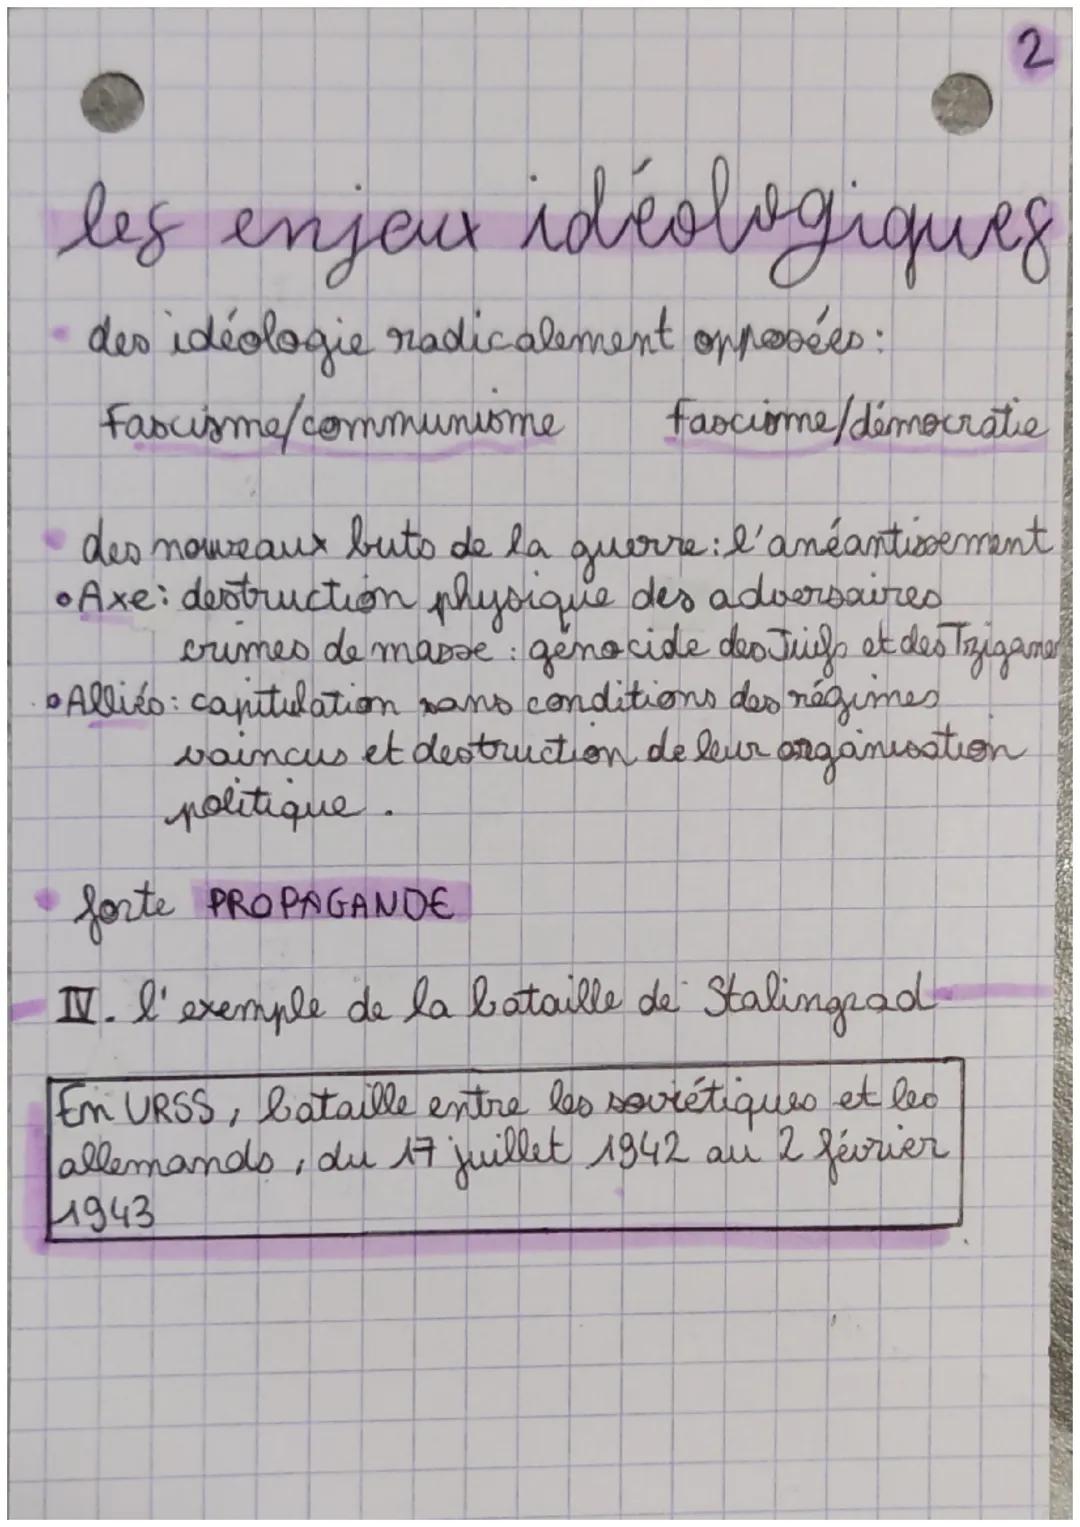 2
les enjeux idéologiques
des idéologie radicalement opposées :
Fascisme/communisme fascisme/démocratie
des nouveaux buts de la guerre : l'anéantissement
Axe : destruction physique des adversaires
crimes de masse : génocide des Juifs et des Tziganes
Alliés : capitulation sans conditions des régimes
vaincus et destruction de leur organisation
politique .
forte PROPAGANDE
IV. l'exemple de la bataille de Stalingrad
En URSS, bataille entre les soviétiques et les
allemands, du 17 juillet 1942 au 2 février
1943